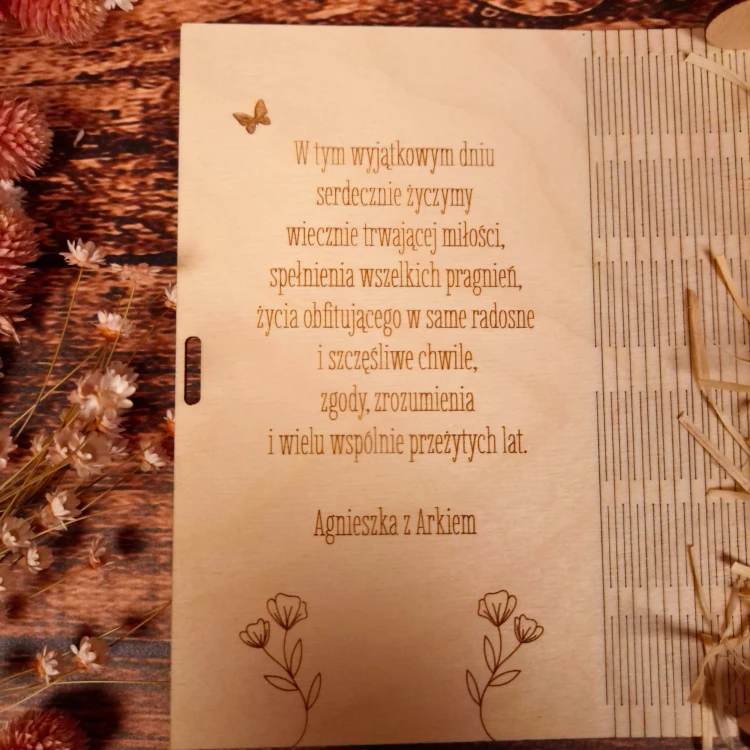 W tym wyjątkowym dniu
serdecznie życzymy
wiecznie trwającej miłości,
spełnienia wszelkich pragnień,
życia obfitującego w same radosne
i szczęśliwe chwile,
zgody, zrozumienia
i wielu wspólnie przeżytych lat.
Agnieszka z Arkiem